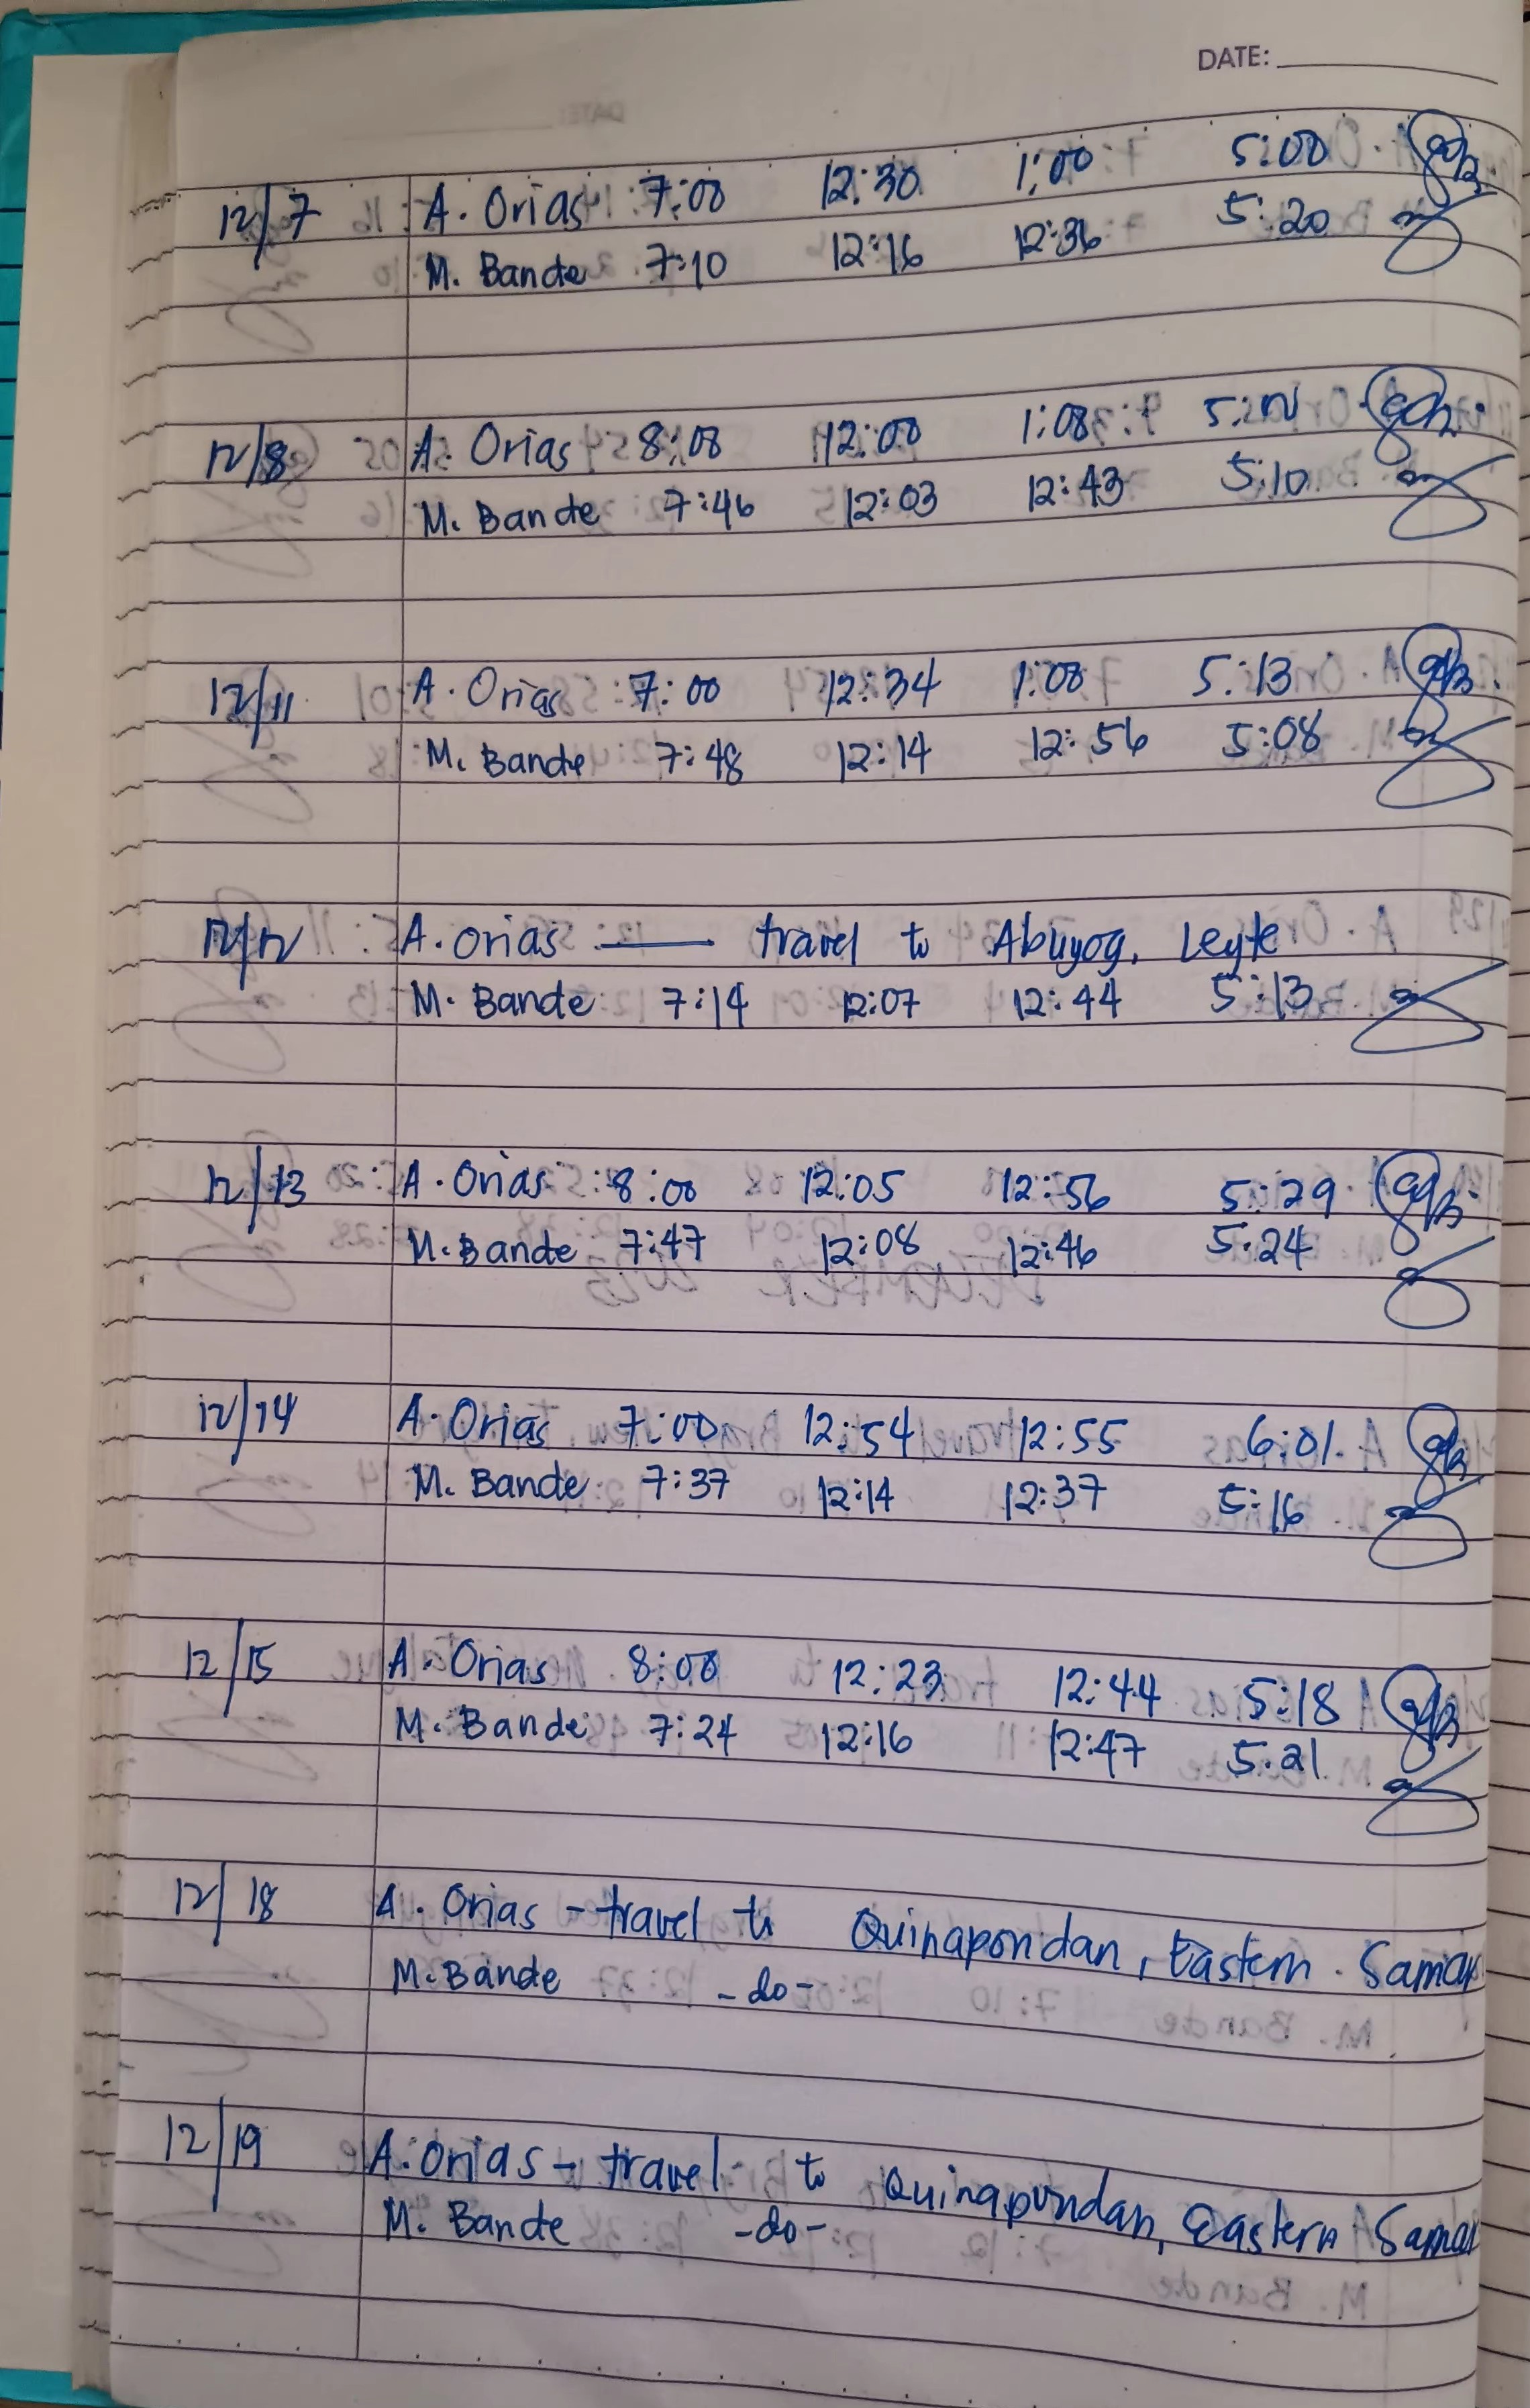 DATE:
12/7 A. Orias 7:00 12:30 1:00 5:00
M. Bande 7:10 12:16 12:36 5:20
12/8 A. Orias 8:00 12:00 1:08 5:12
M. Bande 7:46 12:03 12:43 5:10
12/11 A. Orias 7:00 12:34 1:08 5:13
M. Bande 7:48 12:14 12:56 5:08
12/12 A. Orias — travel to Abuyog, Leyte
M. Bande 7:14 12:07 12:44 5:13
12/13 A. Orias 8:00 12:05 12:56 5:29
M. Bande 7:47 12:08 12:46 5:24
12/14 A. Orias 7:00 12:54 12:55 6:01
M. Bande 7:37 12:14 12:37 5:16
12/15 A. Orias 8:00 12:23 12:44 5:18
M. Bande 7:24 12:16 12:47 5:21
12/18 A. Orias - travel to Quinapondan, Eastern Samar
M. Bande -do-
12/19 A. Orias - travel to Quinapundan, Eastern Samar
M. Bande -do-